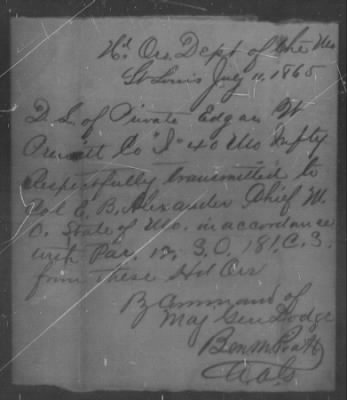 Hd Qrs. Dept of the Mo
St Louis July 11, 1865
D. L. of Private Edgar W
Prewitt Co "I" 40 Mo Infty
Respectfully transmitted to
Col E. B. Alexander Chief M.
O. State of Mo. in accordance
with Par. 12, S.O. 181, C.S.
from these Hd Qrs
By Command of
Maj Gen Dodge
Ben M